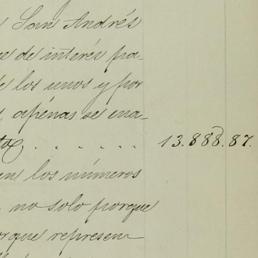 San Andrés
de interés pa-
de los unos y por
apénas se ena-
. . . . . . 13.888.87.
en los números
no solo porque
porque represen